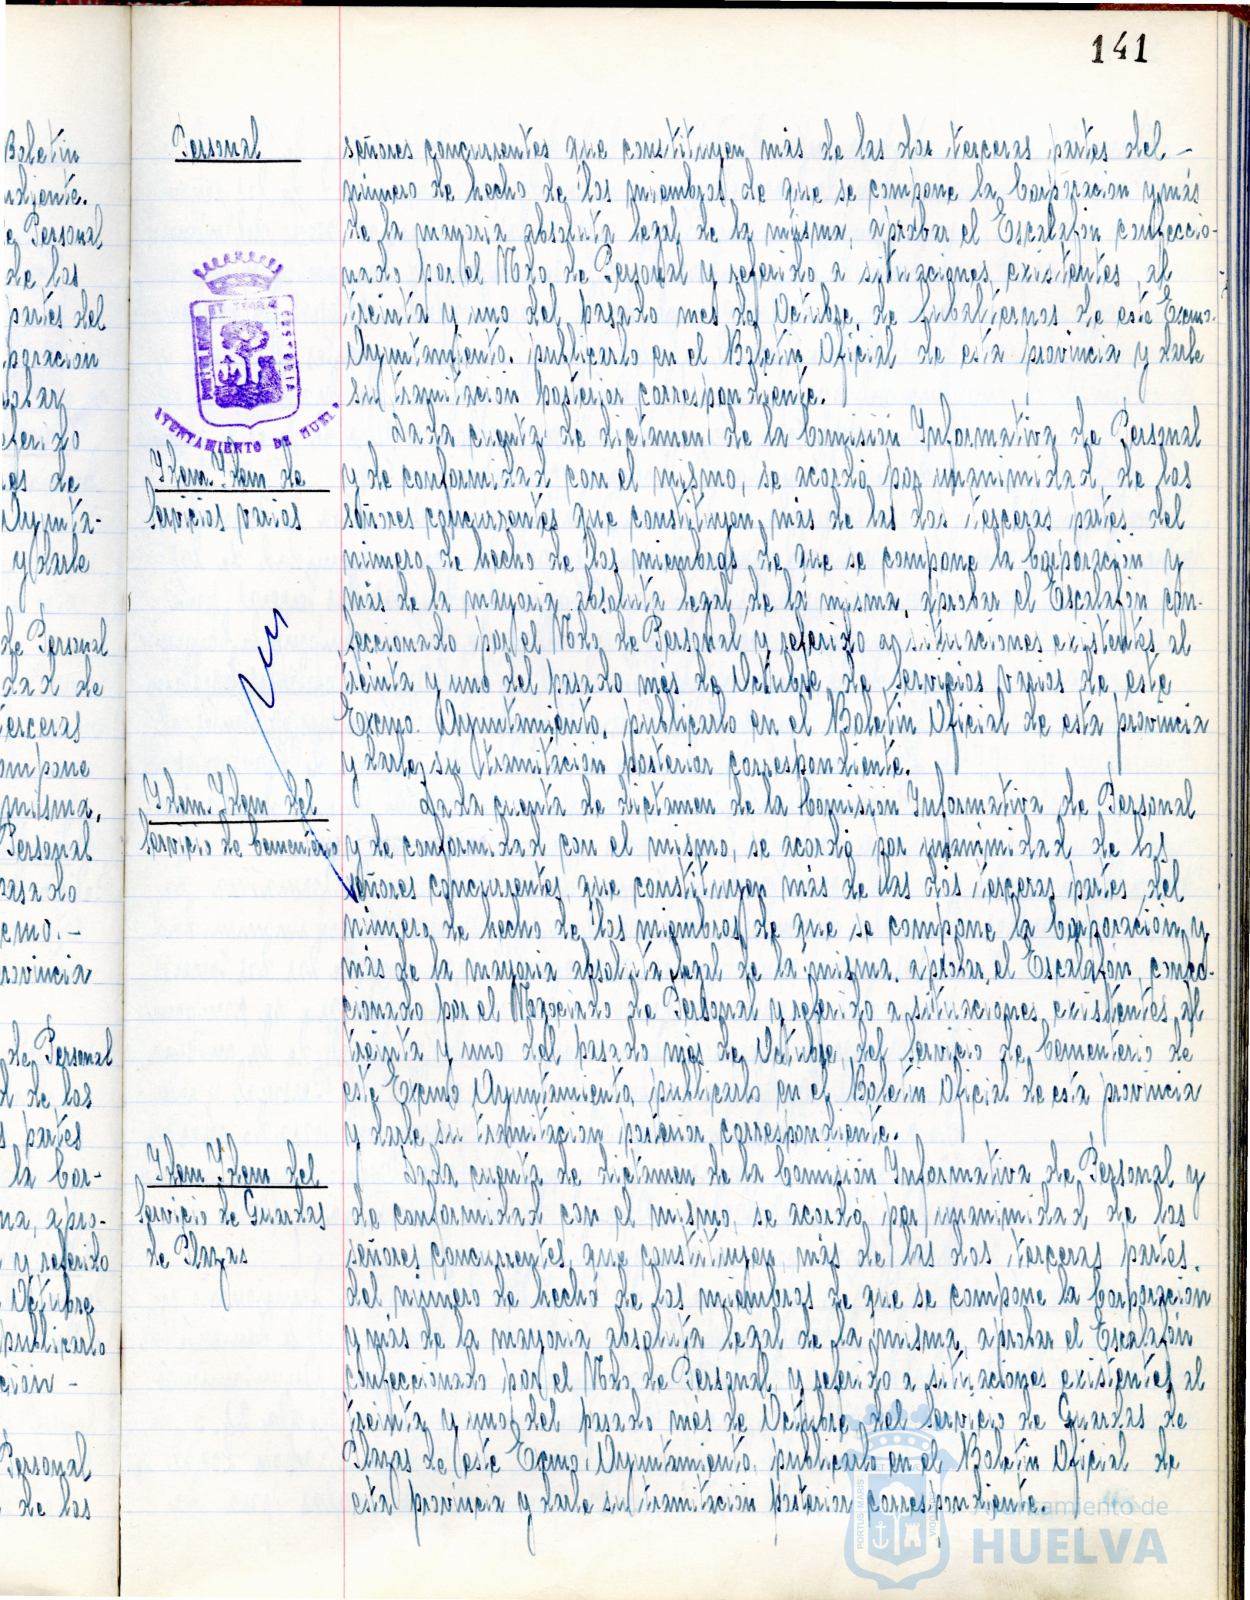 141
Boletin
ndiente.
e Personal
de los
partes del
poración
obar
eferido
es de
Ayunta-
y darle
de Personal
dad de
terceras
ompone
misma,
Personal
pasado
cmo.-
rovincia
de Personal
d de los
s partes
la Cor-
ma, apro-
y referido
Octubre
publicarlo
ción -
Personal
de los
Personal
AYUNTAMIENTO DE HUELVA
Idem. Idem de
Servicios varios
Idem. Idem del
Servicio de Cementerio
Idem Idem del
Servicio de Guardas
de Plazas
señores concurrentes que constituyen más de las dos terceras partes del -
número de hecho de los miembros de que se compone la Corporación y más
de la mayoria absoluta legal de la misma, aprobar el Escalafón confeccio-
nado por el Ndo de Personal y referido a situaciones existentes, al
treinta y uno del pasado mes de Octubre, de Subalternos de este Excmo.
Ayuntamiento, publicarlo en el Boletin Oficial de esta provincia y darle
su tramitación posterior correspondiente.
Dada cuenta de dictamen de la Comisión Informativa de Personal
y de conformidad con el mismo, se acordó por unanimidad de los
señores concurrentes que constituyen más de las dos terceras partes del
número de hecho de los miembros de que se compone la Corporación y
más de la mayoria absoluta legal de la misma, aprobar el Escalafón con-
feccionado por el Ndo de Personal y referido a situaciones existentes al
treinta y uno del pasado mes de Octubre de Servicios varios de este
Excmo. Ayuntamiento, publicarlo en el Boletin Oficial de esta provincia
y darle su tramitación posterior correspondiente.
Dada cuenta de dictamen de la Comisión Informativa de Personal
y de conformidad con el mismo, se acordó por unanimidad de los
señores concurrentes que constituyen más de las dos terceras partes del
número de hecho de los miembros de que se compone la Corporación y
más de la mayoria absoluta legal de la misma, aprobar el Escalafón confec-
cionado por el Negociado de Personal y referido a situaciones existentes al
treinta y uno del pasado mes de Octubre del Servicio de Cementerio de
este Excmo Ayuntamiento, publicarlo en el Boletin Oficial de esta provincia
y darle su tramitación posterior correspondiente.
Dada cuenta de dictamen de la Comisión Informativa de Personal y
de conformidad con el mismo, se acordó por unanimidad de los
señores concurrentes que constituyen más de las dos terceras partes
del número de hecho de los miembros de que se compone la Corporación
y más de la mayoria absoluta legal de la misma, aprobar el Escalafón
confeccionado por el Ndo de Personal y referido a situaciones existentes al
treinta y uno del pasado mes de Octubre del Servicio de Guardas de
Plazas de este Excmo. Ayuntamiento, publicarlo en el Boletin Oficial de
esta provincia y darle su tramitación posterior correspondiente.
PORTUS MARIS
Ayuntamiento de
HUELVA